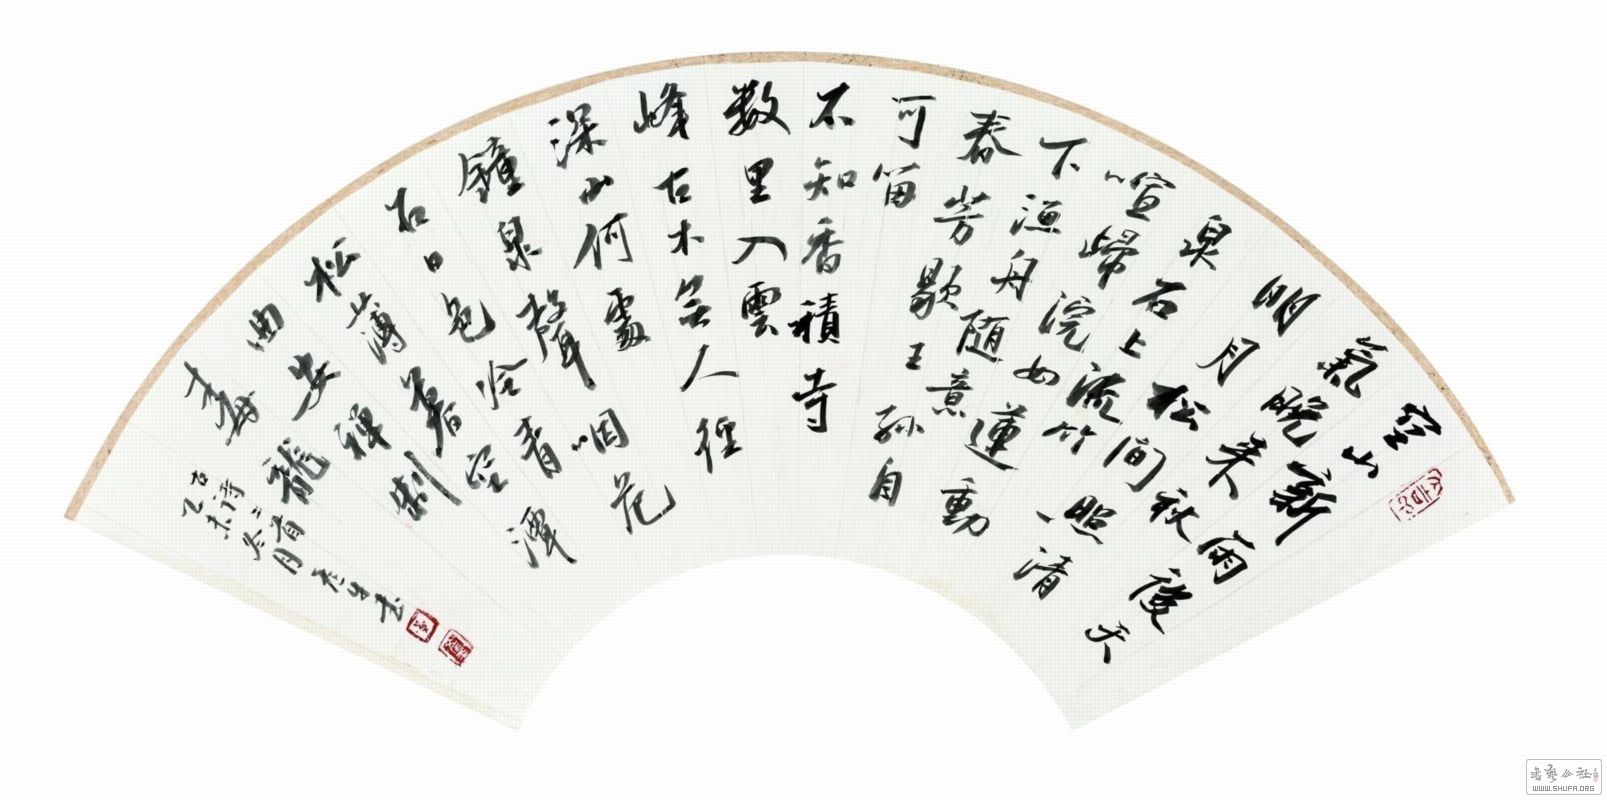 空山新雨後天
氣晚來秋
明月松間照清
泉石上流竹
喧歸浣女蓮動
下漁舟随意
春芳歇王孫自
可留
不知香積寺
数里入雲
峰古木無人徑
深山何處
鐘泉聲咽危
石日色冷青
松薄暮空潭
曲安禪制
毒龍
古詩二首
乙未冬月
WWW.SHUFA.ORG